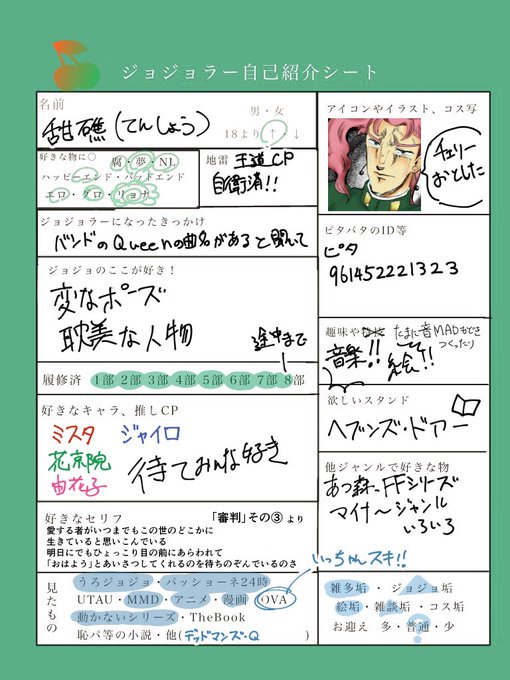 ジョジョラー自己紹介シート
名前
甜礁(てんしょう)
男・女
18より ↑ ↓
好きな物に○
腐・夢・NL
ハッピーエンド・バッドエンド
エロ・グロ・リョナ
地雷 王道CP
自衛済!!
ジョジョラーになったきっかけ
バンドのQueenの曲名があると聞いて
ジョジョのここが好き!
変なポーズ
耽美な人物
途中まで
履修済 1部 2部 3部 4部 5部 6部 7部 8部
好きなキャラ、推しCP
ミスタ ジャイロ
花京院
由花子
待てみんな好き
好きなセリフ 「審判」その③ より
愛する者がいつまでもこの世のどこかに
生きていると思いこんでいる
明日にでもひょっこり目の前にあらわれて
「おはよう」とあいさつしてくれるのを待ちのぞんでいるのさ
いっちゃんスキ!!
見たもの
うろジョジョ・パッショーネ24時
UTAU・MMD・アニメ・漫画・OVA
動かないシリーズ・TheBook
恥パ等の小説・他(デッドマンズ・Q)
アイコンやイラスト、コス写
チェリー
おとした
ピタパタのID等
ピタ
961452221323
趣味や
たまに音MADもどき
つくったり
音楽!! 絵!!
欲しいスタンド
ヘブンズ・ドアー
他ジャンルで好きな物
あつ森 FFシリーズ
マイナ〜ジャンル
いろいろ
雑多垢・ジョジョ垢
絵垢・雑談垢・コス垢
お迎え 多・普通・少
?